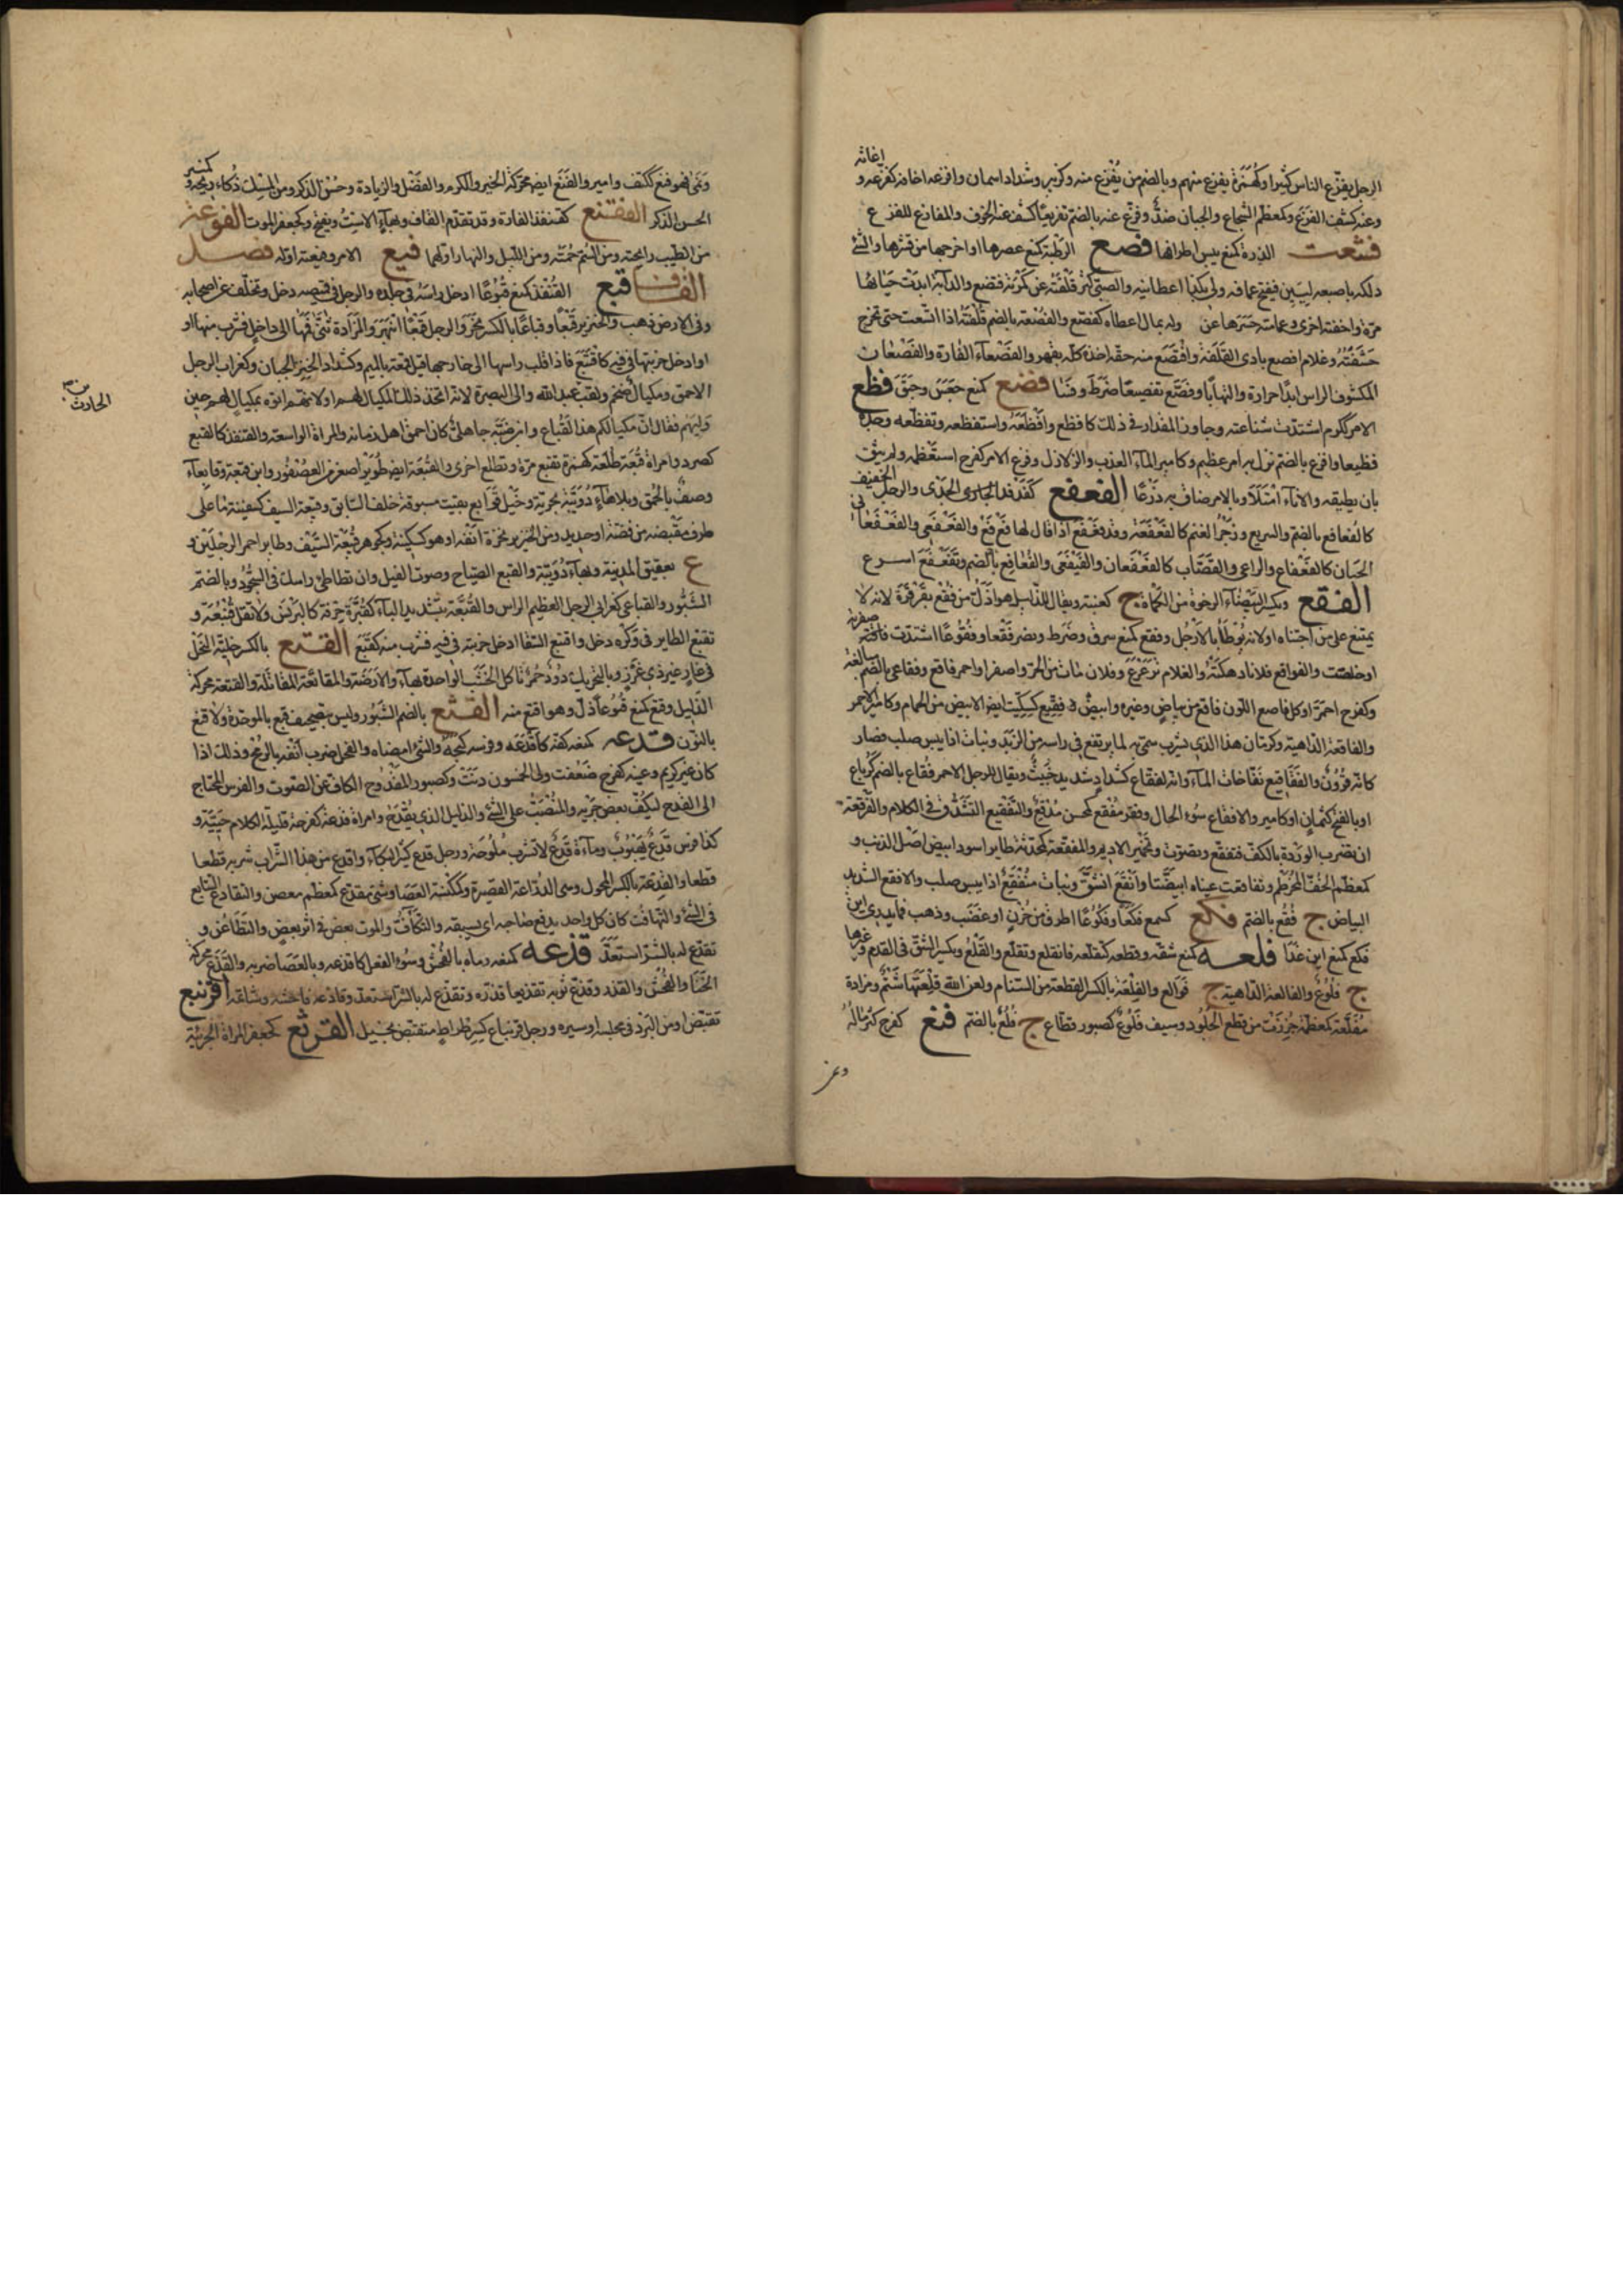 الرجل يفزع الناس كثيرا وكهمزة يفزع منهم وبالضم من يفزع منه وكزبير وشداد اسمان وافزعه اخافه كفزعه و اغاثه
وعنه كشف الفزع وكمعظم الشجاع والجبان ضد وفزع عنه بالضم تفزيعا كشف عنه الخوف والمفازع للفزع ع
فشعت الذرة كمنع يبس اطرافها فصع الرطبة كمنع عصرها او اخرجها من قشرها والشئ
دلكه باصبعه ليلين فيفتح عما فيه ولى بكذا اعطانيه والصبى كثر قلفته عن كمرته ففصع والدابة ابدت حياءها
مرة واخفته اخرى وعمامته حسرها عن وله بمال اعطاه كفصع والفصعة بالضم قلفته اذا اتسعت حتى تخرج
حشفته وغلام افصع بادى القلفة وافتصع منه حقه اخذه كله بقهر والفصعاء الفارة والفصعان
المكشوف الراس ابدا حرارة والتهابا وفصع تفصيعا ضرط وفسا فضع كمنع جعس وحبق فظع
الامر ككرم اشتدت شناعته وجاوز المقدار فى ذلك كافظع وافظعه واستفظعه وتفظعه وجده
فظيعا وافزع بالضم نزل به امر عظيم وكامير الماء العذب والزلال وفزع الامر كفرح استعظمه ولم يثق
بان يطيقه والاناء امتلا وبالامر ضاق به ذرعا الفعفع كفدفد الجدى والرجل الخفيف
كالفعافع بالضم والسريع وزجر الغنم كالفعفعة وقد فعفع اذا قال لها فع فع والفعفعى والفعفعانى
الجبان كالفعفاع والراعى والقصاب كالفعفعان والفيفعى والفعافع بالضم وتفعفع اسرع
الفقع ويكسر البيضاء الرخوة من الكماة ج كعنبة ويقال للذليل هو اذل من فقع بقرقرة لانه لا
يمتنع على من اجتناه او لانه يوطا بالارجل وفقع كمنع سرق وضرط وبصر فقعا وفقوعا اشتدت صفرته
او خلصت والفواقع فلانا دهكته والغلام ترعرع وفلان مات من الحر واصفر او احمر فاقع وفقاعى بالضم مبالغة
وكفرح احمر او كل ناصع اللون فاقع من بياض وغيره وابيض فقيع كسكيت ايض الابيض من الحمام وكامير الاحمر
والفاقعة الداهية وكرمان هذا الذى يشرب سمى به لما يرتفع فى راسه من الزبد ونبات اذا يبس صلب فصار
كانه قرون والفقاقيع نفاخات الماء وانه لفقاع كشداد شديد خبيث ويقال للرجل الاحمر فقاع بالضم كرباع
او بالفتح كثمان او كامير والافقاع سوء الحال وفقر مفقع كمحسن مدقع والتفقيع التشدق فى الكلام والفرقعة
ان تضرب الوردة بالكف فتفقع وتصوت وتحمير الاديم والمفقعة كمحدثة طاير اسود ابيض اصل الذنب و
كمعظم الخف المخرطم وتفاقعت عيناه ابيضتا وانفقع انشق ونبات متفقع اذا يبس صلب والافقع الشديد
البياض ج فقع بالضم فكع كسمع فكعا وفكوعا اطرق من حزن او غضب وذهب فما يدرى اين
فكع كمنع اين غدا فلعه كمنع شقه وقطعه كفلعه فانفلع وتفلع والفلع ويكسر الشق فى القدم وغيرها
ج فلوع والفالعة الداهية ج فوالع والفلعة بالكسر القطعة من السنام ولعن الله فلعتها شتم ومزادة
مفلعة كمعظمة خرزت من قطع الجلود وسيف فلوع كصبور قطاع ج فلع بالضم فنع كفرح كثر ماله
وغز
ونمى فهو فنع ككتف وامير والفنع ايض محركة الخير والكرم والفضل والزيادة وحسن الذكر ومن المسك ذكاء ريحه و كمنبر
الحسن الذكر الفنقع كقنفذ الفارة وقد تقدم القاف وبهاء الاست ويفتح وكجعفر الموت الفوعة
من الطيب رايحته ومن السم حمته ومن الليل والنهار اولهما فيع الامر وفيعته اوله فصل
القاف قبع القنفذ كمنع قبوعا ادخل راسه فى جلده والرجل فى قميصه دخل وتخلف عن اصحابه
وفى الارض ذهب والخنزير قبعا وقباعا بالكسر نخر والرجل قبعا انبهر والمزادة ثنى فمها الى داخل فشرب منها او
او ادخل خربتها فى فيه كاقتبع فاذا قلب راسها الى خارجها قيل قمعه بالميم وكشداد الخنزير الجبان وكغراب الرجل
الاحمق ومكيال ضخم ولقب عبد الله والى البصرة لانه اتخذ ذلك المكيال لهم او لانهم اتوه بمكيال لهم حين
بن الحارث صح
وليهم فقال ان مكيالكم هذا لقباع وابن ضبة جاهلى كان احمق اهل زمانه والمراة الواسعة والقنفذ كالقبع
كصرد وامراة قبعة طلعة كهمزة تقبع مرة وتطلع اخرى والقبعة ايض طوير اصغر من العصفور وابن قبعة وقابعاء
وصف بالحمق وبلا هاء دويبة بحرية وخيل قوابع بقيت مسبوقة خلف السابق وقبيعة السيف كسفينة ما على
طرف مقبضه من فضة او حديد ومن الخنزير نخرة انفه او هو كسكينة وكجوهر قبيعة السيف وطاير احمر الرجلين و
ع بعقيق المدينة وبهاء دويبة والقبع الصياح وصوت الفيل وان تطاطئ راسك فى السجود وبالضم
الشبور والقباعى كغرابى الرجل العظيم الراس والقبعة بتشديد الباء كقبرة خرقة كالبرنس ولا تقل قنبعة و
تقبع الطاير فى وكره دخل واقتبع السقا ادخل خربته فى فيه فشرب منه كقبع القتع بالكسر خلية النحل
فى غار غير ذى غور وبالتحريك دود حمر تاكل الخشب الواحدة بهاء والارضة والمقاتعة المقاتلة والقتعة محركة
الذليل وقتع كمنع قتوعا ذل وهو اقتع منه القثع بالضم الشبور وليس بتصحيف قبع بالموحدة ولا قنع
بالنون قدعه كمنعه كفه كاقدعه وفرسه كبحه والشئ امضاه والفحل ضرب انفه بالرمح وذلك اذا
كان غير كريم وعينه كفرح ضعفت ولى الخمسون دنت وكصبور المقدوع الكاف عن الصوت والفرس المحتاج
الى القدع ليكف بعض جريه والمنصب على الشئ والذليل الذى يقدع وامراة قدعة كفرحة قليلة الكلام حيية و
كذا فرس قدع هيوب وماءة قدع لا تشرب ملوحة ورجل قدع كثير البكاء واقدع من هذا الشراب شربه قطعا
قطعا والقدعة بالكسر المجول وهى الدراعة القصيرة وككنسة العصا وشئ مقدع كمعظم معصن والتقادع التتابع
فى الشئ والتهافت كان كل واحد يدفع صاحبه اى يسبقه والتكاف والموت بعض فى اثر بعض والتطاعن و
تقدع له بالشر استعد قذعه كمنعه رماه بالفحش وسوء القول كاقذعه وبالعصا ضربه والقذع محركة
الخنا والفحش والقذر وقذع ثوبه تقذيعا قذره وتقذع له بالشر استعد وقاذعه فاحشه وشاتمه اقرنبع
تقبض او من البرد فى مجلسه او سيره ورجل قرنباع كسرطراط متقبض بخيل القرثع كجعفر المراة الجريئة